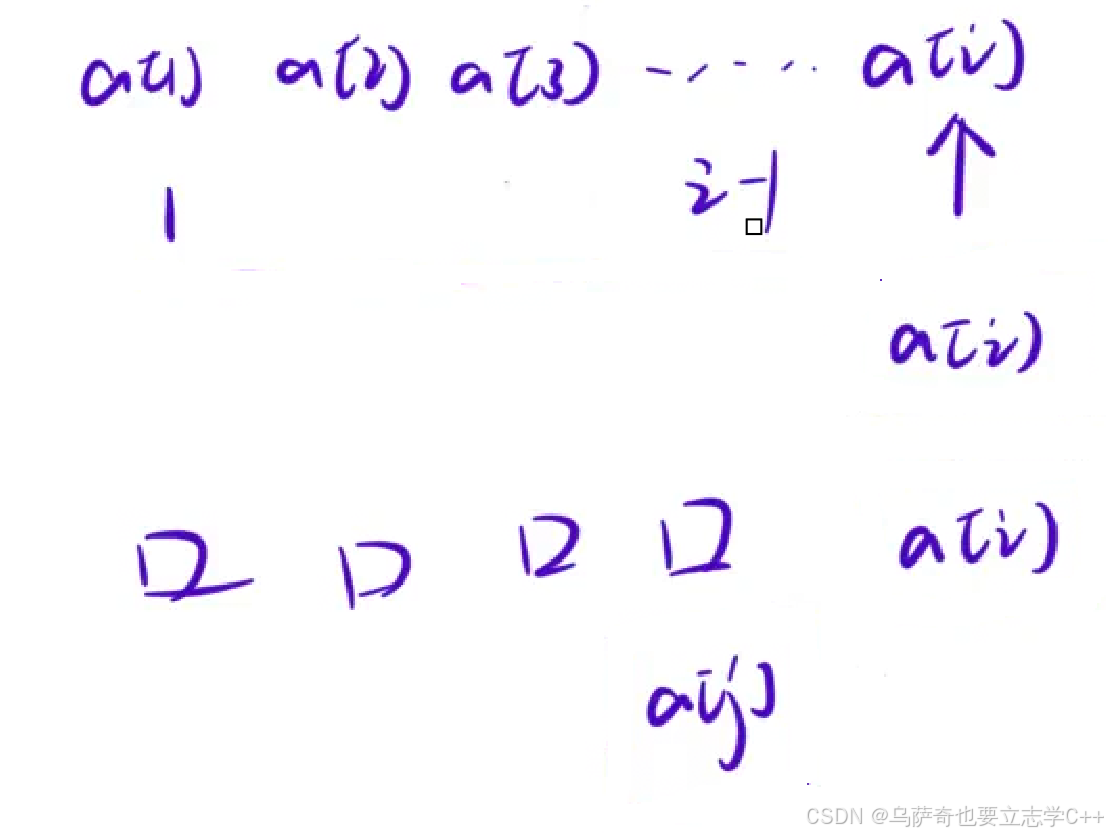 a[1] a[2] a[3] ...... a[i]
1 i-1
a[i]
口 口 口 口 a[i]
a[j]
CSDN @乌萨奇也要立志学C++